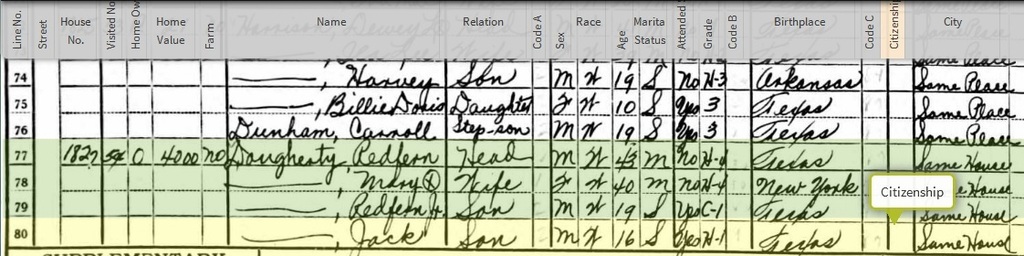 Line No. Street House No. Visited No Home Ow Home Value Farm Name Relation Code A Sex Race Age Marita Status Attended Grade Code B Birthplace Code C Citizenship City
74 ——, Harvey Son M W 19 S No H-3 Arkansas Same Place
75 ——, Billie Doris Daughter F W 10 S Yes 3 Texas Same Place
76 Dunham, Carroll Step-son M W 19 S Yes 3 Texas Same Place
77 1827 54 O 4000 no Daugherty, Redfern Head M W 43 M No H-4 Texas Same House
78 ——, Mary Wife F W 40 M no H-4 New York Same House
Citizenship
79 ——, Redfern Jr. Son M W 19 S Yes C-1 Texas Same House
80 ——, Jack Son M W 16 S Yes H-1 Texas Same House
SUPPLEMENTARY